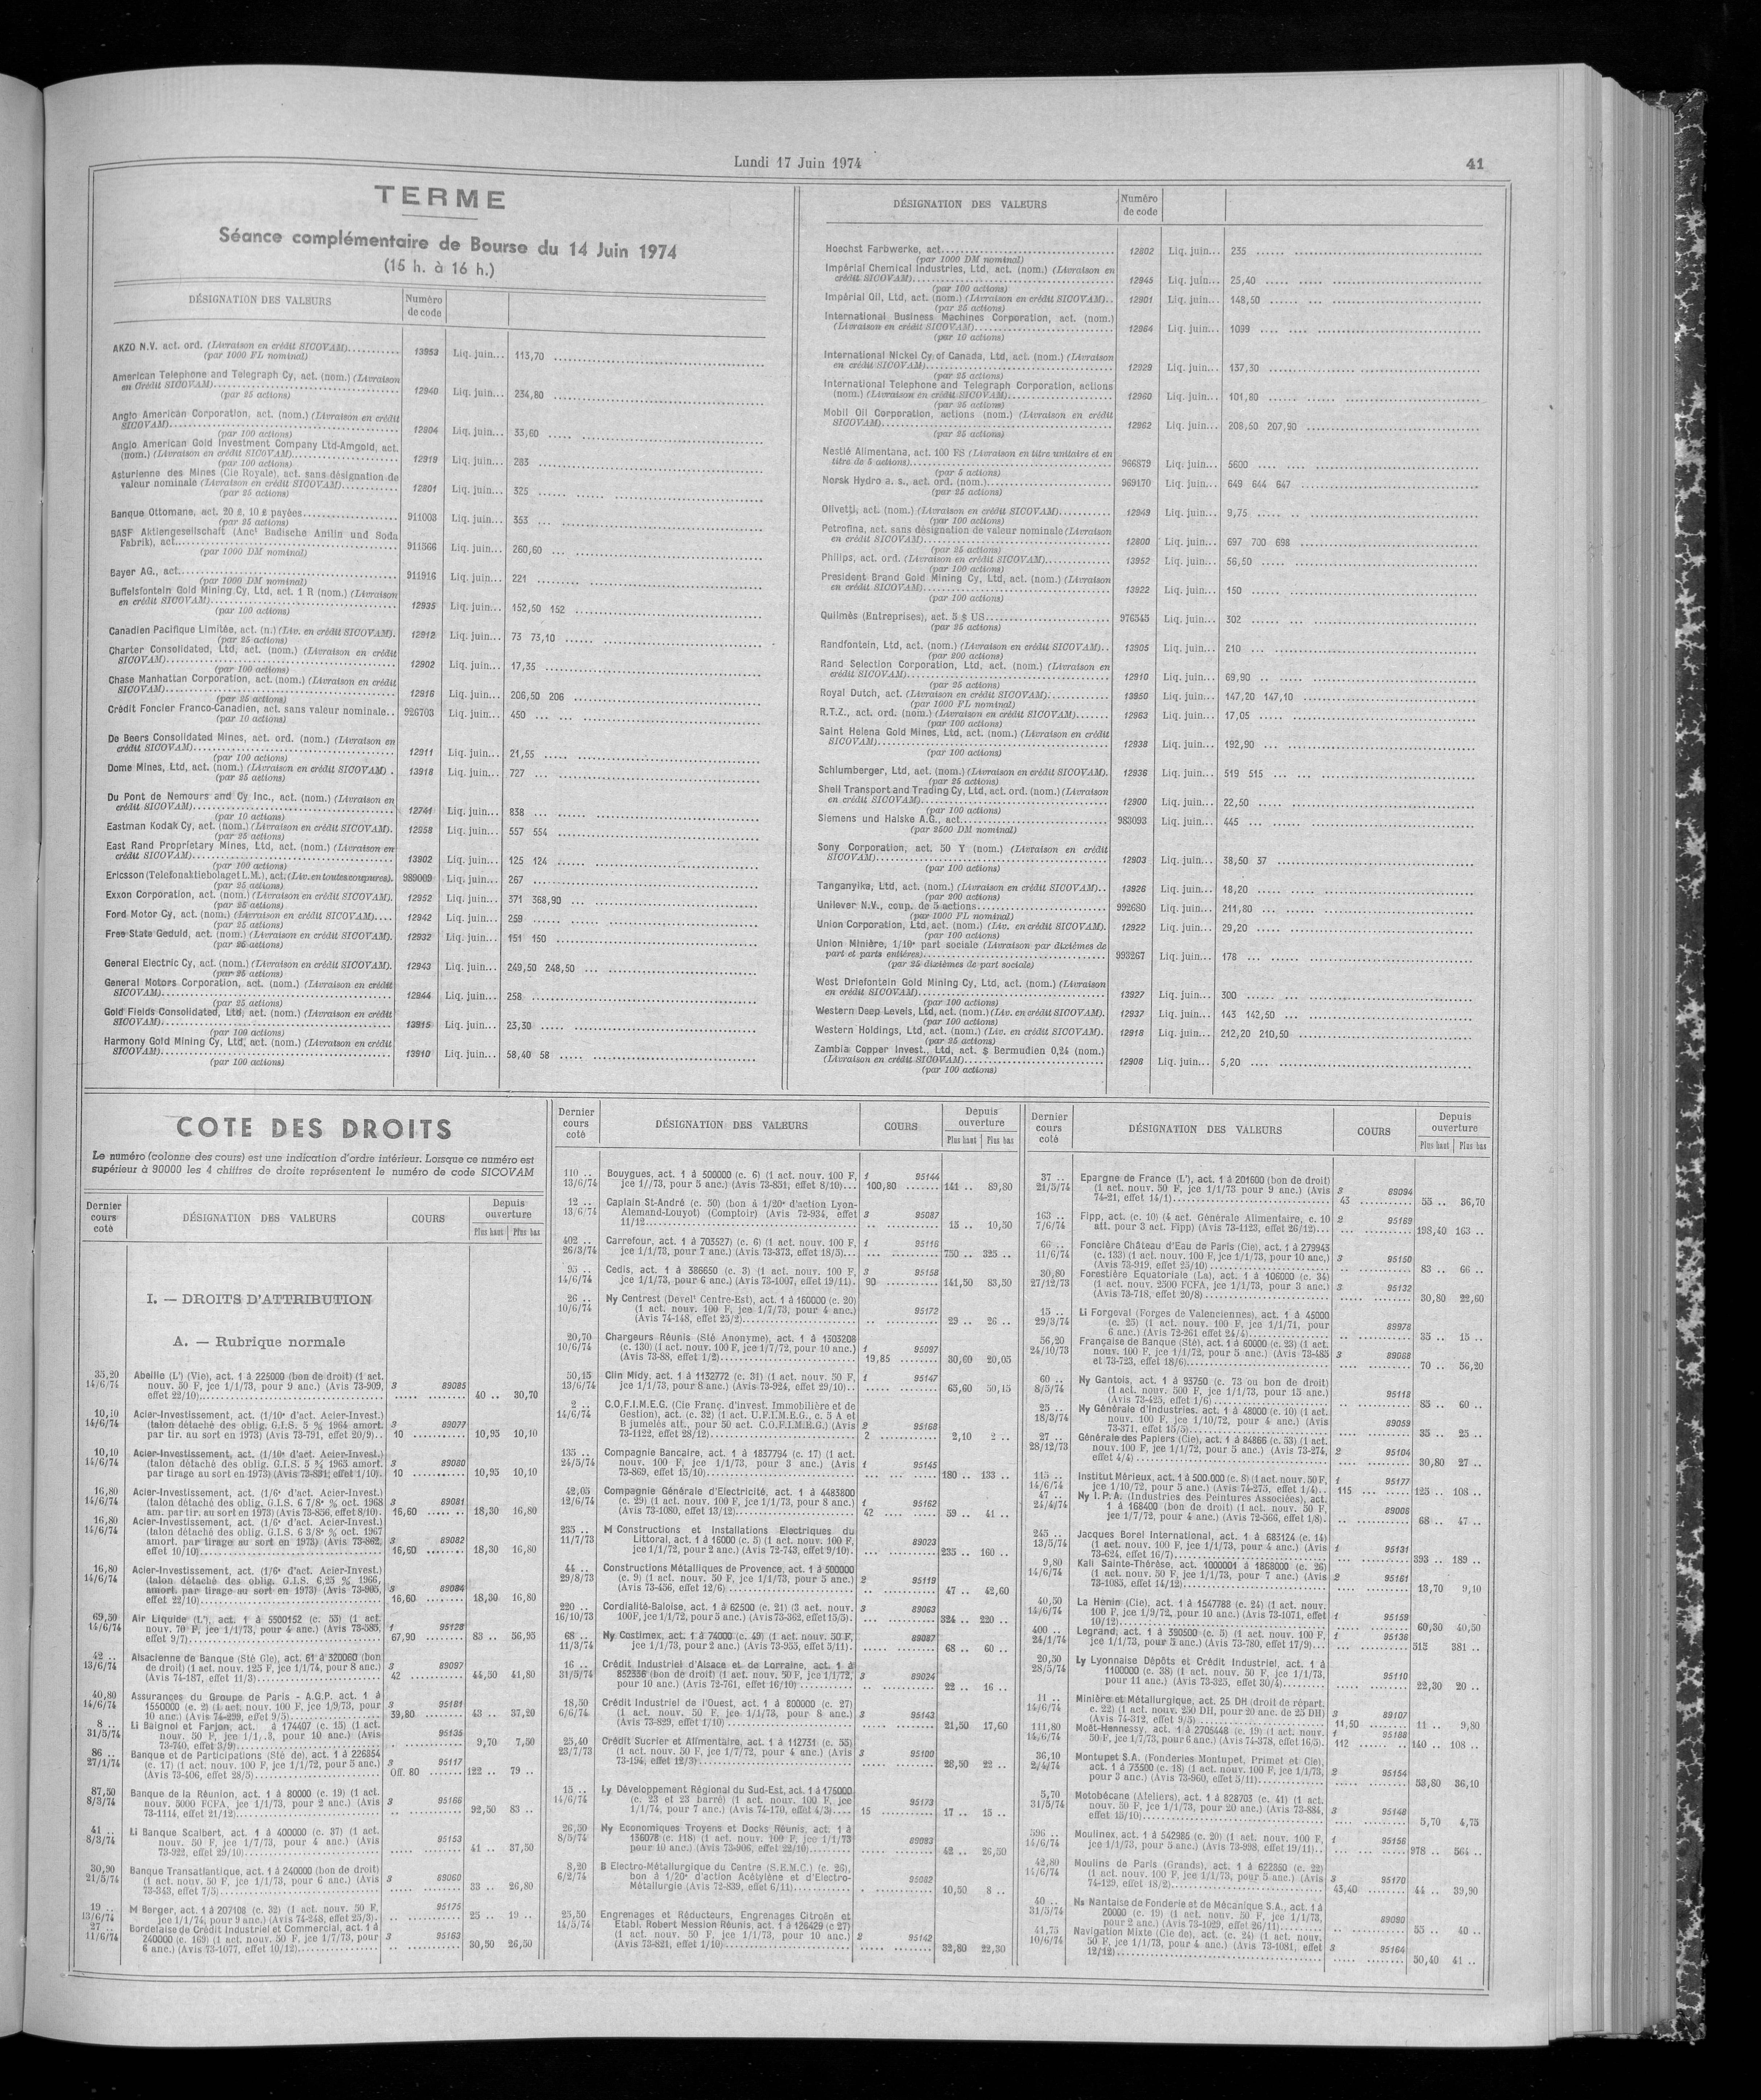 Lundi 17 Juin 1974
41
TERME
Séance complémentaire de Bourse du 14 Juin 1974
(15 h. à 16 h.)
DÉSIGNATION DES VALEURS
Numéro
de code
AKZO N.V. act. ord. (Livraison en crédit SICOVAM) 13953 Liq. juin... 113,70
(par 1000 FL nominal)
American Telephone and Telegraph Cy, act. (nom.) (Livraison
en Crédit SICOVAM) 12940 Liq. juin... 234,80
(par 25 actions)
Anglo American Corporation, act. (nom.) (Livraison en crédit
SICOVAM) 12904 Liq. juin... 33,60
(par 100 actions)
Anglo American Gold Investment Company Ltd-Amgold, act.
(nom.) (Livraison en crédit SICOVAM) 12919 Liq. juin... 283
(par 100 actions)
Asturienne des Mines (Cie Royale), act. sans désignation de
valeur nominale (Livraison en crédit SICOVAM) 12801 Liq. juin... 325
(par 25 actions)
Banque Ottomane, act. 20 £, 10 £ payées 911003 Liq. juin... 353
(par 25 actions)
BASF Aktiengesellschaft (Anct Badische Anilin und Soda
Fabrik), act. 911566 Liq. juin... 260,60
(par 1000 DM nominal)
Bayer AG., act. 911916 Liq. juin... 221
(par 1000 DM nominal)
Buffelsfontein Gold Mining Cy, Ltd, act. 1 R (nom.) (Livraison
en crédit SICOVAM) 12935 Liq. juin... 152,50 152
(par 100 actions)
Canadien Pacifique Limitée, act. (n.) (Liv. en crédit SICOVAM). 12912 Liq. juin... 73 73,10
(par 25 actions)
Charter Consolidated, Ltd, act. (nom.) (Livraison en crédit
SICOVAM) 12902 Liq. juin... 17,35
(par 100 actions)
Chase Manhattan Corporation, act. (nom.) (Livraison en crédit
SICOVAM) 12916 Liq. juin... 206,50 206
(par 25 actions)
Crédit Foncier Franco-Canadien, act. sans valeur nominale.. 926703 Liq. juin... 450
(par 10 actions)
De Beers Consolidated Mines, act. ord. (nom.) (Livraison en
crédit SICOVAM) 12911 Liq. juin... 21,55
(par 100 actions)
Dome Mines, Ltd, act. (nom.) (Livraison en crédit SICOVAM) . 13918 Liq. juin... 727
(par 25 actions)
Du Pont de Nemours and Cy Inc., act. (nom.) (Livraison en
crédit SICOVAM) 12741 Liq. juin... 838
(par 10 actions)
Eastman Kodak Cy, act. (nom.) (Livraison en crédit SICOVAM). 12958 Liq. juin... 557 554
(par 25 actions)
East Rand Proprietary Mines, Ltd, act. (nom.) (Livraison en
crédit SICOVAM) 13902 Liq. juin... 125 124
(par 100 actions)
Ericsson (Telefonaktiebolaget L.M.), act. (Liv. en toutes coupures). 989009 Liq. juin... 267
(par 25 actions)
Exxon Corporation, act. (nom.) (Livraison en crédit SICOVAM). 12952 Liq. juin... 371 368,90
(par 25 actions)
Ford Motor Cy, act. (nom.) (Livraison en crédit SICOVAM).... 12942 Liq. juin... 259
(par 25 actions)
Free State Geduld, act. (nom.) (Livraison en crédit SICOVAM). 12932 Liq. juin... 151 150
(par 25 actions)
General Electric Cy, act. (nom.) (Livraison en crédit SICOVAM). 12943 Liq. juin... 249,50 248,50
(par 25 actions)
General Motors Corporation, act. (nom.) (Livraison en crédit
SICOVAM) 12944 Liq. juin... 258
(par 25 actions)
Gold Fields Consolidated, Ltd, act. (nom.) (Livraison en crédit
SICOVAM) 13915 Liq. juin... 23,30
(par 100 actions)
Harmony Gold Mining Cy, Ltd, act. (nom.) (Livraison en crédit
SICOVAM) 13910 Liq. juin... 58,40 58
(par 100 actions)
DÉSIGNATION DES VALEURS
Numéro
de code
Hoechst Farbwerke, act. 12802 Liq. juin... 235
(par 1000 DM nominal)
Impérial Chemical Industries, Ltd, act. (nom.) (Livraison en
crédit SICOVAM) 12945 Liq. juin... 25,40
(par 100 actions)
Impérial Oil, Ltd, act. (nom.) (Livraison en crédit SICOVAM).. 12901 Liq. juin... 148,50
(par 25 actions)
International Business Machines Corporation, act. (nom.)
(Livraison en crédit SICOVAM) 12964 Liq. juin... 1099
(par 10 actions)
International Nickel Cy of Canada, Ltd, act. (nom.) (Livraison
en crédit SICOVAM) 12929 Liq. juin... 137,30
(par 25 actions)
International Telephone and Telegraph Corporation, actions
(nom.) (Livraison en crédit SICOVAM) 12960 Liq. juin... 101,80
(par 25 actions)
Mobil Oil Corporation, actions (nom.) (Livraison en crédit
SICOVAM) 12962 Liq. juin... 208,50 207,90
(par 25 actions)
Nestlé Alimentana, act. 100 FS (Livraison en titre unitaire et en
titre de 5 actions) 966879 Liq. juin... 5600
(par 5 actions)
Norsk Hydro a. s., act. ord. (nom.) 969170 Liq. juin... 649 644 647
(par 25 actions)
Olivetti, act. (nom.) (Livraison en crédit SICOVAM) 12949 Liq. juin... 9,75
(par 100 actions)
Petrofina, act. sans désignation de valeur nominale (Livraison
en crédit SICOVAM) 12800 Liq. juin... 697 700 698
(par 25 actions)
Philips, act. ord. (Livraison en crédit SICOVAM) 13952 Liq. juin... 56,50
(par 100 actions)
President Brand Gold Mining Cy, Ltd, act. (nom.) (Livraison
en crédit SICOVAM) 13922 Liq. juin... 150
(par 100 actions)
Quilmès (Entreprises), act. 5 $ US 976545 Liq. juin... 302
(par 25 actions)
Randfontein, Ltd, act. (nom.) (Livraison en crédit SICOVAM).. 13905 Liq. juin... 210
(par 200 actions)
Rand Selection Corporation, Ltd, act. (nom.) (Livraison en
crédit SICOVAM) 12910 Liq. juin... 69,90
(par 25 actions)
Royal Dutch, act. (Livraison en crédit SICOVAM) 13950 Liq. juin... 147,20 147,10
(par 1000 FL nominal)
R.T.Z., act. ord. (nom.) (Livraison en crédit SICOVAM) 12963 Liq. juin... 17,05
(par 100 actions)
Saint Helena Gold Mines, Ltd, act. (nom.) (Livraison en crédit
SICOVAM) 12938 Liq. juin... 192,90
(par 100 actions)
Schlumberger, Ltd, act. (nom.) (Livraison en crédit SICOVAM). 12936 Liq. juin... 519 515
(par 25 actions)
Shell Transport and Trading Cy, Ltd, act. ord. (nom.) (Livraison
en crédit SICOVAM) 12900 Liq. juin... 22,50
(par 100 actions)
Siemens und Halske A.G., act. 983093 Liq. juin... 445
(par 2500 DM nominal)
Sony Corporation, act. 50 Y (nom.) (Livraison en crédit
SICOVAM) 12903 Liq. juin... 38,50 37
(par 100 actions)
Tanganyika, Ltd, act. (nom.) (Livraison en crédit SICOVAM).. 13926 Liq. juin... 18,20
(par 200 actions)
Unilever N.V., coup. de 5 actions 992680 Liq. juin... 211,80
(par 1000 FL nominal)
Union Corporation, Ltd, act. (nom.) (Liv. en crédit SICOVAM). 12922 Liq. juin... 29,20
(par 100 actions)
Union Minière, 1/10e part sociale (Livraison par dixièmes de
part et parts entières) 993267 Liq. juin... 178
(par 25 dixièmes de part sociale)
West Driefontein Gold Mining Cy, Ltd, act. (nom.) (Livraison
en crédit SICOVAM) 13927 Liq. juin... 300
(par 100 actions)
Western Deep Levels, Ltd, act. (nom.) (Liv. en crédit SICOVAM). 12937 Liq. juin... 143 142,50
(par 100 actions)
Western Holdings, Ltd, act. (nom.) (Liv. en crédit SICOVAM). 12918 Liq. juin... 212,20 210,50
(par 25 actions)
Zambia Copper Invest., Ltd, act. $ Bermudien 0,24 (nom.)
(Livraison en crédit SICOVAM) 12908 Liq. juin... 5,20
(par 100 actions)
COTE DES DROITS
Le numéro (colonne des cours) est une indication d'ordre intérieur. Lorsque ce numéro est
supérieur à 90000 les 4 chiffres de droite représentent le numéro de code SICOVAM
Dernier cours coté
DÉSIGNATION DES VALEURS
COURS
Depuis ouverture
Plus haut Plus bas
I. — DROITS D'ATTRIBUTION
A. — Rubrique normale
35,20 Abeille (L') (Vie), act. 1 à 225000 (bon de droit) (1 act.
14/6/74 nouv. 50 F, jce 1/1/73, pour 9 anc.) (Avis 73-909, 3 89085
effet 22/10) 40 .. 30,70
10,10 Acier-Investissement, act. (1/10e d'act. Acier-Invest.)
14/6/74 (talon détaché des oblig. G.I.S. 5 % 1964 amort. 3 89077
par tir. au sort en 1973) (Avis 73-791, effet 20/9).. 10 10,95 10,10
10,10 Acier-Investissement, act. (1/10e d'act. Acier-Invest.)
14/6/74 (talon détaché des oblig. G.I.S. 5 % 1965 amort. 3 89080
par tirage au sort en 1973) (Avis 73-831, effet 1/10). 10 10,95 10,10
16,80 Acier-Investissement, act. (1/6e d'act. Acier-Invest.)
14/6/74 (talon détaché des oblig. G.I.S. 6 7/8e % oct. 1968 3 89081
am. par tir. au sort en 1973) (Avis 73-856, effet 8/10). 16,60 18,30 16,80
16,80 Acier-Investissement, act. (1/6e d'act. Acier-Invest.)
14/6/74 (talon détaché des oblig. G.I.S. 6 3/8e % oct. 1967
amort. par tirage au sort en 1973) (Avis 73-862, 3 89082
effet 10/10) 16,60 18,30 16,80
16,80 Acier-Investissement, act. (1/6e d'act. Acier-Invest.)
14/6/74 (talon détaché des oblig. G.I.S. 6,25 % 1966,
amort. par tirage au sort en 1973) (Avis 73-905, 3 89084
effet 22/10) 16,60 18,30 16,80
69,50 Air Liquide (L'), act. 1 à 5500152 (c. 55) (1 act.
14/6/74 nouv. 70 F, jce 1/1/73, pour 4 anc.) (Avis 73-585, 1 95128
effet 9/7) 67,90 83 .. 56,95
42 .. Alsacienne de Banque (Sté Gle), act. 61 à 320060 (bon
13/6/74 de droit) (1 act. nouv. 125 F, jce 1/1/74, pour 8 anc.) 3 89097
(Avis 74-187, effet 11/3) 42 44,50 41,80
40,80 Assurances du Groupe de Paris - A.G.P. act. 1 à
14/6/74 1550000 (c. 2) (1 act. nouv. 100 F, jce 1/9/73, pour 3 95181
10 anc.) (Avis 74-299, effet 9/5) 39,80 43 .. 37,20
8 .. Li Baignol et Farjon, act. à 174407 (c. 15) (1 act.
31/5/74 nouv. 50 F, jce 1/1/.3, pour 10 anc.) (Avis 95135
73-740, effet 3/9) 9,70 7,50
86 .. Banque et de Participations (Sté de), act. 1 à 226854
27/1/74 (c. 17) (1 act. nouv. 100 F, jce 1/1/72, pour 5 anc.) 3 95117
(Avis 73-406, effet 28/5) Off. 80 122 .. 79 ..
87,50 Banque de la Réunion, act. 1 à 80000 (c. 19) (1 act.
8/3/74 nouv. 5000 FCFA, jce 1/1/73, pour 2 anc.) (Avis 3 95166
73-1114, effet 21/12) 92,50 83 ..
41 .. Li Banque Scalbert, act. 1 à 400000 (c. 37) (1 act.
8/3/74 nouv. 50 F, jce 1/7/73, pour 4 anc.) (Avis 95153
73-922, effet 29/10) 41 .. 37,50
30,90 Banque Transatlantique, act. 1 à 240000 (bon de droit)
21/5/74 (1 act. nouv. 50 F, jce 1/1/73, pour 6 anc.) (Avis 3 89060
73-343, effet 7/5) 33 .. 26,80
19 .. M Berger, act. 1 à 207108 (c. 32) (1 act. nouv. 50 F, 95175
13/6/74 jce 1/1/74, pour 9 anc.) (Avis 74-248, effet 25/3). 25 .. 19 ..
27 .. Bordelaise de Crédit Industriel et Commercial, act. 1 à
11/6/74 240000 (c. 169) (1 act. nouv. 50 F, jce 1/7/73, pour 3 95163
6 anc.) (Avis 73-1077, effet 10/12) 30,50 26,50
Dernier cours coté
DÉSIGNATION DES VALEURS
COURS
Depuis ouverture
Plus haut Plus bas
110 .. Bouygues, act. 1 à 500000 (c. 6) (1 act. nouv. 100 F, 1 95144
13/6/74 jce 1//73, pour 5 anc.) (Avis 73-851, effet 8/10)... 100,80 141 .. 89,80
12 .. Caplain St-André (c. 50) (bon à 1/20e d'action Lyon-
13/6/74 Alemand-Louyot) (Comptoir) (Avis 72-934, effet 3 95087
11/12 15 .. 10,50
402 .. Carrefour, act. 1 à 703527) (c. 6) (1 act. nouv. 100 F, 1 95116
26/3/74 jce 1/1/73, pour 7 anc.) (Avis 73-373, effet 18/5)... 750 .. 325 ..
95 .. Cedis, act. 1 à 386650 (c. 3) (1 act. nouv. 100 F, 3 95158
14/6/74 jce 1/1/73, pour 6 anc.) (Avis 73-1007, effet 19/11). 90 141,50 83,50
26 .. Ny Centrest (Develt Centre-Est), act. 1 à 160000 (c. 20)
10/6/74 (1 act. nouv. 100 F, jce 1/7/73, pour 4 anc.) 95172
(Avis 74-148, effet 25/2) 29 .. 26 ..
20,70 Chargeurs Réunis (Sté Anonyme), act. 1 à 1303208
10/6/74 (c. 130) (1 act. nouv. 100 F, jce 1/7/72, pour 10 anc.) 1 95097
(Avis 73-88, effet 1/2) 19,85 30,60 20,05
50,15 Clin Midy, act. 1 à 1132772 (c. 31) (1 act. nouv. 50 F, 1 95147
13/6/74 jce 1/1/73, pour 8 anc.) (Avis 73-924, effet 29/10).. 65,60 50,15
2 .. C.O.F.I.M.E.G. (Cie Franç. d'invest. Immobilière et de
14/6/74 Gestion), act. (c. 32) (1 act. U.F.I.M.E.G., c. 5 A et
B jumelés att., pour 50 act. C.O.F.I.M.E.G.) (Avis 2 95168
73-1122, effet 28/12) 2 2,10 2 ..
135 .. Compagnie Bancaire, act. 1 à 1837794 (c. 17) (1 act.
24/5/74 nouv. 100 F, jce 1/1/73, pour 3 anc.) (Avis 1 95145
73-869, effet 15/10) 180 .. 133 ..
42,05 Compagnie Générale d'Electricité, act. 1 à 4483800
12/6/74 (c. 29) (1 act. nouv. 100 F, jce 1/1/73, pour 8 anc.) 1 95162
(Avis 73-1080, effet 13/12) 42 59 .. 41 ..
235 .. M Constructions et Installations Electriques du
11/7/73 Littoral, act. 1 à 16000 (c. 5) (1 act. nouv. 100 F, 89023
jce 1/1/72, pour 2 anc.) (Avis 72-743, effet 9/10).. 235 .. 160 ..
44 .. Constructions Métalliques de Provence, act. 1 à 500000
29/8/73 (c. 9) (1 act. nouv. 50 F, jce 1/1/73, pour 5 anc.) 2 95119
(Avis 73-456, effet 12/6) 47 .. 42,60
220 .. Cordialité-Baloise, act. 1 à 62500 (c. 21) (3 act. nouv. 3 89063
16/10/73 100F, jce 1/1/72, pour 5 anc.) (Avis 73-362, effet 15/5). 324 .. 220 ..
68 .. Ny Costimex, act. 1 à 74000 (c. 49) (1 act. nouv. 50 F, 89087
11/3/74 jce 1/1/73, pour 2 anc.) (Avis 73-955, effet 5/11). 68 .. 60 ..
16 .. Crédit Industriel d'Alsace et de Lorraine, act. 1 à
31/5/74 852336 (bon de droit) (1 act. nouv. 50 F, jce 1/1/72, 3 89024
pour 10 anc.) (Avis 72-761, effet 16/10) 22 .. 16 ..
18,50 Crédit Industriel de l'Ouest, act. 1 à 800000 (c. 27)
6/6/74 (1 act. nouv. 50 F, jce 1/1/73, pour 8 anc.) 3 95143
(Avis 73-829, effet 1/10) 21,50 17,60
25,40 Crédit Sucrier et Alimentaire, act. 1 à 112731 (c. 55)
23/7/73 (1 act. nouv. 50 F, jce 1/7/72, pour 4 anc.) (Avis 3 95100
73-194, effet 12/3) 28,50 22 ..
15 .. Ly Développement Régional du Sud-Est, act. 1 à 175000
14/6/74 (c. 23 et 23 barré) (1 act. nouv. 100 F, jce 95173
1/1/74, pour 7 anc.) (Avis 74-170, effet 4/3) 15 17 .. 15 ..
26,50 Ny Economiques Troyens et Docks Réunis, act. 1 à
8/5/74 136078 (c. 118) (1 act. nouv. 100 F, jce 1/1/73 89083
pour 10 anc.) (Avis 73-906, effet 22/10) 42 .. 26,50
8,20 B Electro-Métallurgique du Centre (S.E.M.C.) (c. 26),
6/2/74 bon à 1/20e d'action Acétylène et d'Electro- 95082
Métallurgie (Avis 72-839, effet 6/11) 10,50 8 ..
25,50 Engrenages et Réducteurs, Engrenages Citroën et
14/5/74 Etabl. Robert Messian Réunis, act. 1 à 126429 (c 27)
(1 act. nouv. 50 F, jce 1/1/73, pour 10 anc.) 2 95142
(Avis 73-821, effet 1/10) 32,80 22,30
Dernier cours coté
DÉSIGNATION DES VALEURS
COURS
Depuis ouverture
Plus haut Plus bas
37 .. Epargne de France (L'), act. 1 à 201600 (bon de droit)
21/5/74 (1 act. nouv. 50 F, jce 1/1/73 pour 9 anc.) (Avis 3 89094
74-21, effet 14/1) 43 55 .. 36,70
163 .. Fipp, act. (c. 10) (4 act. Générale Alimentaire, c. 10 2 95169
7/6/74 att. pour 3 act. Fipp) (Avis 73-1123, effet 26/12)... 198,40 163 ..
66 .. Foncière Château d'Eau de Paris (Cie), act. 1 à 279943
11/6/74 (c. 133) (1 act. nouv. 100 F, jce 1/1/73, pour 10 anc.) 3 95150
(Avis 73-919, effet 25/10) 83 .. 66 ..
30,80 Forestière Equatoriale (La), act. 1 à 106000 (c. 34)
27/12/73 (1 act. nouv. 2500 FCFA, jce 1/1/73, pour 3 anc.) 3 95132
(Avis 73-718, effet 20/8) 30,80 22,60
15 .. Li Forgeval (Forges de Valenciennes), act. 1 à 45000
29/3/74 (c. 25) (1 act. nouv. 100 F, jce 1/1/71, pour 89978
6 anc.) (Avis 72-261 effet 24/4) 35 .. 15 ..
56,20 Française de Banque (Sté), act. 1 à 60000 (c. 23) (1 act.
24/10/73 nouv. 100 F, jce 1/1/72, pour 5 anc.) (Avis 73-485 3 89068
et 73-723, effet 18/6) 70 .. 56,20
60 .. Ny Gantois, act. 1 à 93750 (c. 73 ou bon de droit)
8/5/74 (1 act. nouv. 500 F, jce 1/1/72, pour 15 anc.) 95118
(Avis 73-425, effet 1/6) 85 .. 60 ..
25 .. Ny Générale d'Industries, act. 1 à 48000 (c. 10) (1 act.
18/3/74 nouv. 100 F, jce 1/10/72, pour 4 anc.) (Avis 89059
73-371, effet 15/5) 35 .. 25 ..
27 .. Générale des Papiers (Cie), act. 1 à 84866 (c. 53) (1 act.
28/12/73 nouv. 100 F, jce 1/1/72, pour 5 anc.) (Avis 73-274, 2 95104
effet 4/4) 30,80 27 ..
115 .. Institut Mérieux, act. 1 à 500.000 (c. 8) (1 act. nouv. 50 F, 1 95177
14/6/74 jce 1/10/72, pour 5 anc.) (Avis 74-275, effet 1/4).. 115 125 .. 108 ..
47 .. Ny I.P.A. (Industries des Peintures Associées), act.
24/4/74 1 à 168400 (bon de droit) (1 act. nouv. 50 F, 89006
jce 1/7/72, pour 4 anc.) (Avis 72-566, effet 1/8). 68 .. 47 ..
245 .. Jacques Borel International, act. 1 à 683124 (c. 14)
13/5/74 (1 act. nouv. 100 F, jce 1/1/73, pour 4 anc.) (Avis 1 95131
73-624, effet 16/7) 393 .. 189 ..
9,80 Kali Sainte-Thérèse, act. 1000001 à 1868000 (c. 26)
14/6/74 (1 act. nouv. 50 F, jce 1/1/73, pour 7 anc.) (Avis 2 95161
73-1085, effet 14/12) 13,70 9,10
40,50 La Hénin (Cie), act. 1 à 1547788 (c. 24) (1 act. nouv.
14/6/74 100 F, jce 1/9/72, pour 10 anc.) (Avis 73-1071, effet 1 95159
10/12) 60,30 40,50
400 .. Legrand, act. 1 à 390500 (c. 5) (1 act. nouv. 100 F, 1 95136
24/1/74 jce 1/1/73, pour 5 anc.) (Avis 73-780, effet 17/9)... 515 381 ..
20,50 Ly Lyonnaise Dépôts et Crédit Industriel, act. 1 à
28/5/74 1100000 (c. 38) (1 act. nouv. 50 F, jce 1/1/73, 95110
pour 11 anc.) (Avis 73-325, effet 30/4) 22,30 20 ..
11 .. Minière et Métallurgique, act. 25 DH (droit de répart.
14/6/74 c. 22) (1 act. nouv. 250 DH, pour 20 anc. de 25 DH) 3 89107
(Avis 74-312, effet 9/5) 11,50 11 .. 9,80
111,80 Moët-Hennessy, act. 1 à 2705448 (c. 19) (1 act. nouv. 1 95188
14/6/74 50 F, jce 1/7/73, pour 6 anc.) (Avis 74-378, effet 16/5). 112 140 .. 108 ..
36,10 Montupet S.A. (Fonderies Montupet, Primet et Cie),
2/4/74 act. 1 à 73500 (c. 18) (1 act. nouv. 100 F, jce 1/1/73, 2 95154
pour 3 anc.) (Avis 73-960, effet 5/11) 53,80 36,10
5,70 Motobécane (Ateliers), act. 1 à 828703 (c. 41) (1 act.
31/5/74 nouv. 50 F, jce 1/1/73, pour 20 anc.) (Avis 73-884, 3 95148
effet 15/10) 5,70 4,75
596 .. Moulinex, act. 1 à 542985 (c. 20) (1 act. nouv. 100 F, 1 95156
14/6/74 jce 1/1/73, pour 5 anc.) (Avis 73-998, effet 19/11).. 978 .. 564 ..
42,80 Moulins de Paris (Grands), act. 1 à 622350 (c. 22)
14/6/74 (1 act. nouv. 100 F, jce 1/1/73, pour 5 anc.) (Avis 3 95170
74-129, effet 18/2) 43,40 44 .. 39,90
40 .. Ns Nantaise de Fonderie et de Mécanique S.A., act. 1 à
31/5/74 20000 (c. 19) (1 act. nouv. 50 F, jce 1/1/73, 89090
pour 2 anc.) (Avis 73-1029, effet 26/11) 55 .. 40 ..
41,75 Navigation Mixte (Cie de), act. (c. 24) (1 act. nouv.
10/6/74 50 F, jce 1/1/73, pour 4 anc.) (Avis 73-1081, effet 3 95164
12/12) 50,40 41 ..